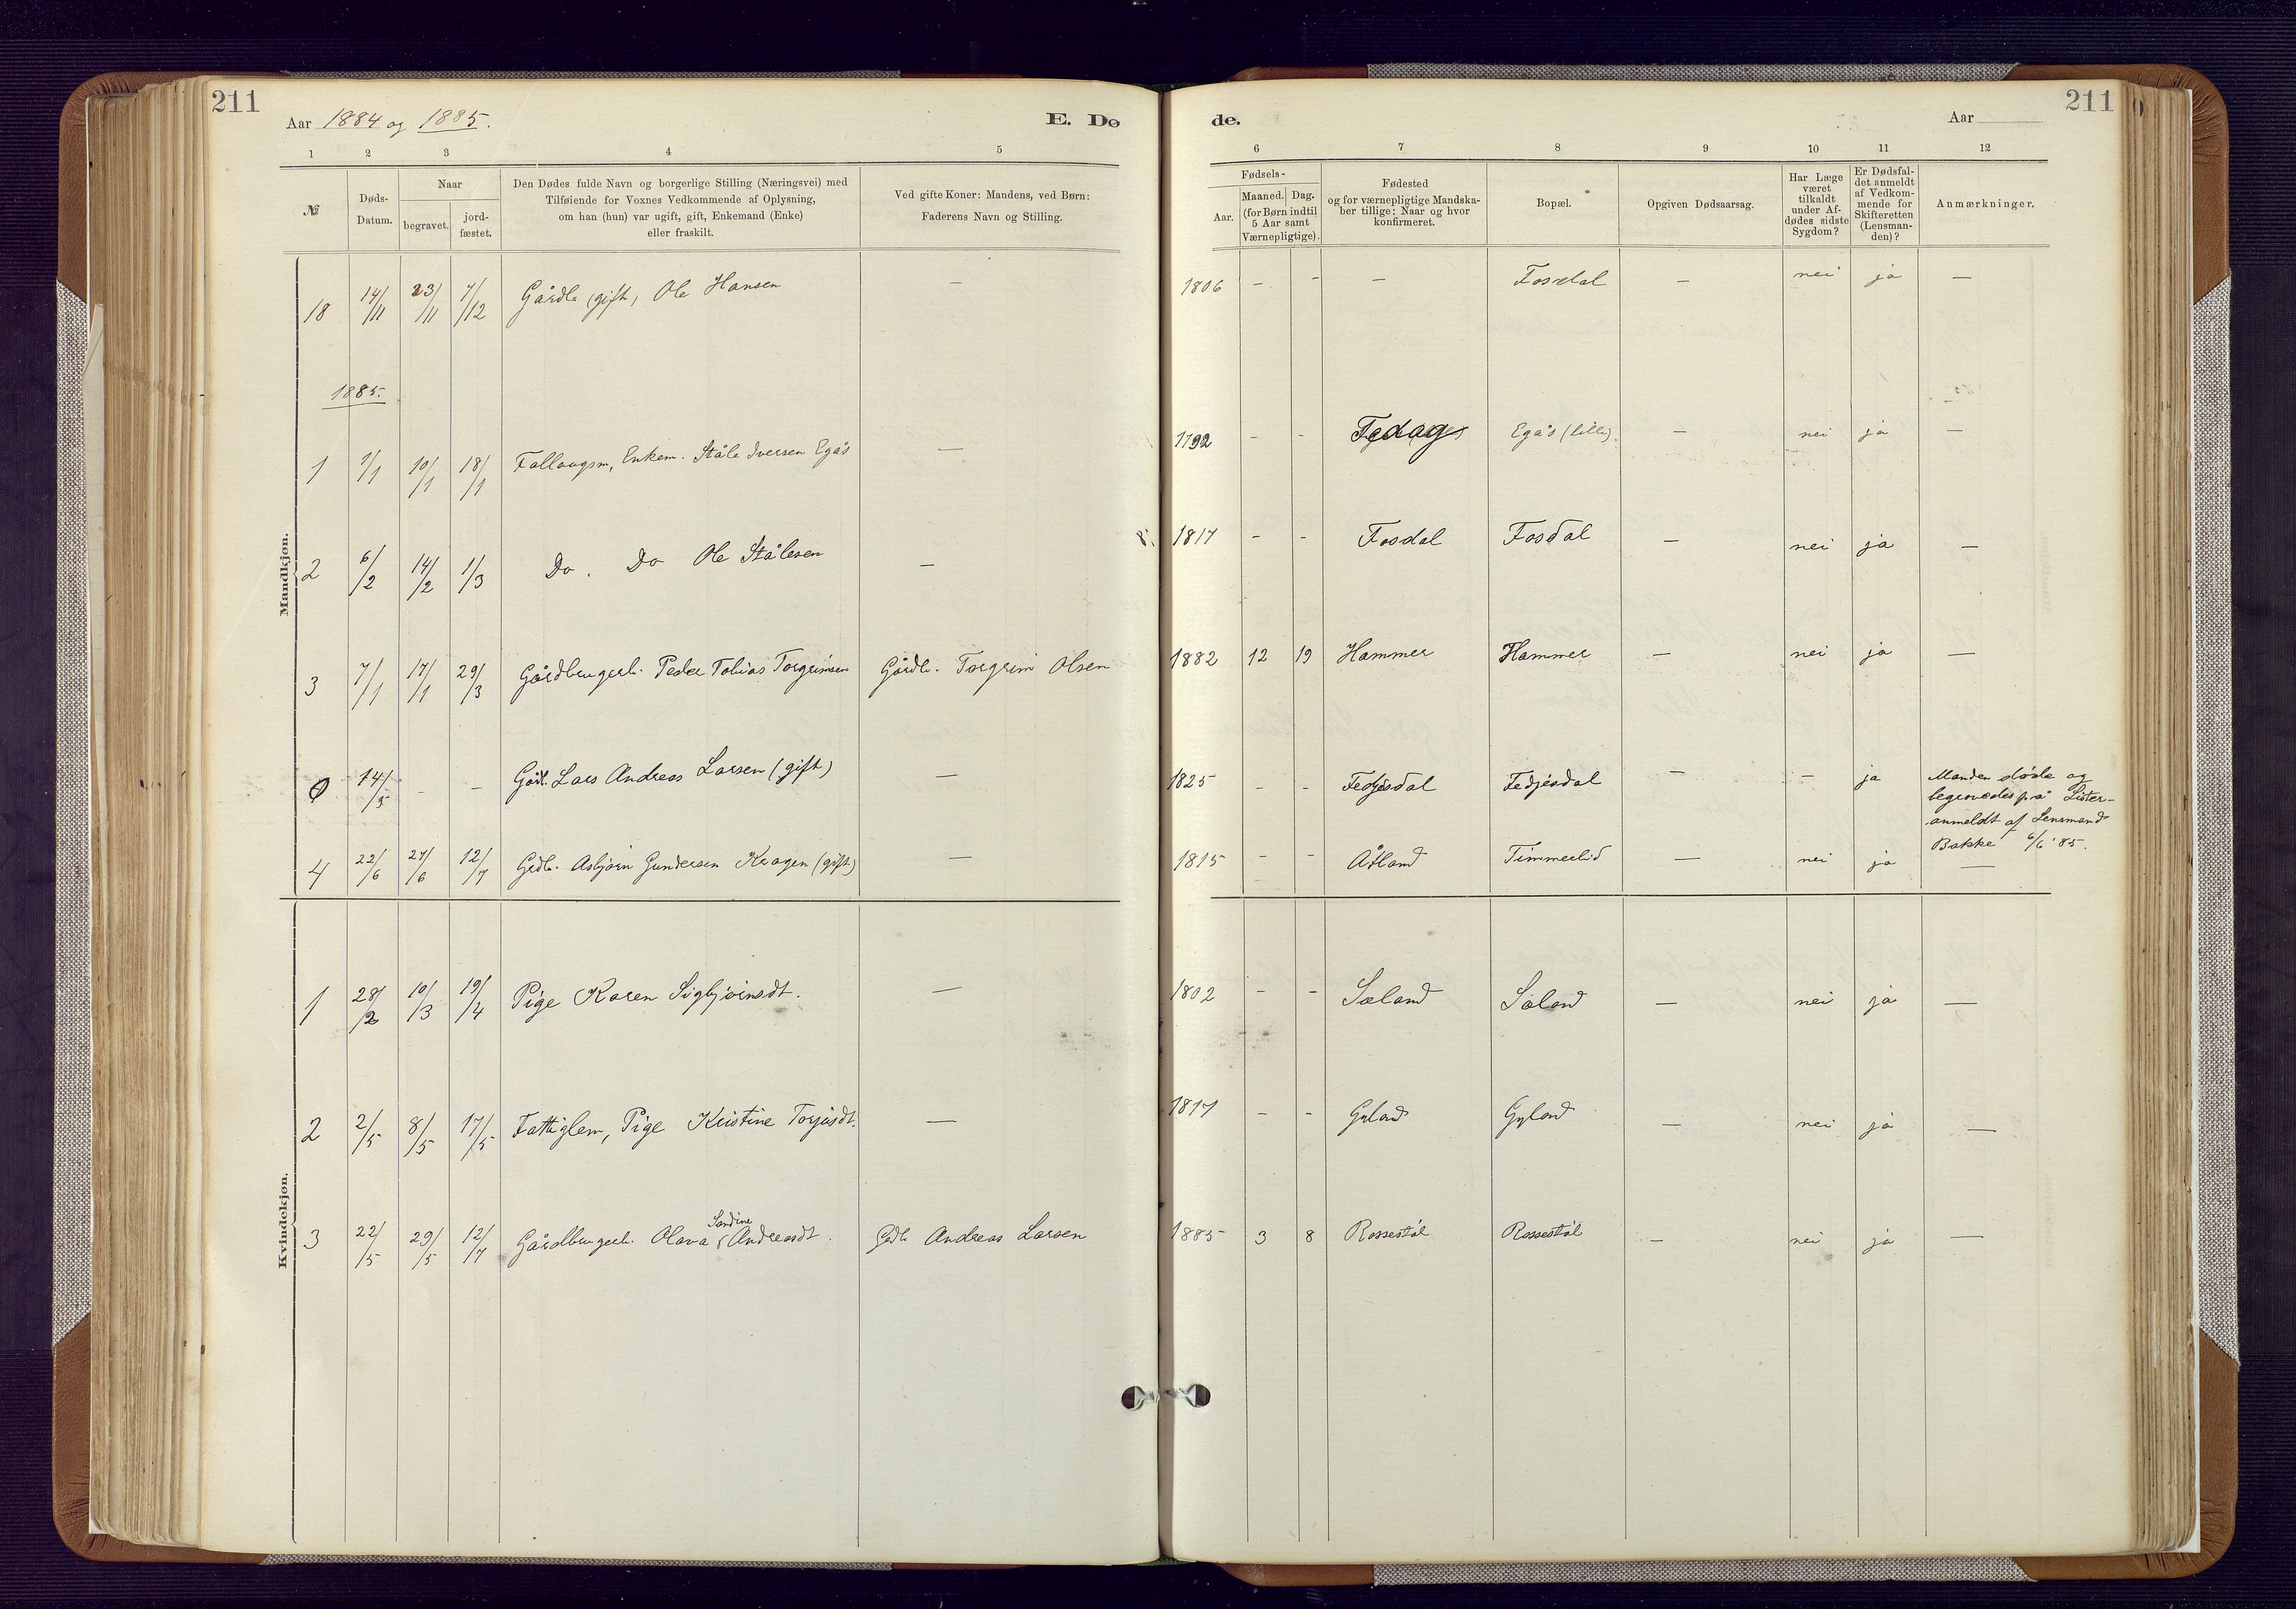 211
Aar 1884 og 1885.
E. Dø
de.
Aar
211
1 2 3 4 5
6 7 8 9 10 11 12
№
Døds-
Datum.
Naar
begravet.
jord-
fæstet.
Den Dødes fulde Navn og borgerlige Stilling (Næringsvei) med
Tilføiende for Voxnes Vedkommende af Oplysning,
om han (hun) var ugift, gift, Enkemand (Enke)
eller fraskilt.
Ved gifte Koner: Mandens, ved Børn:
Faderens Navn og Stilling.
Fødsels-
Aar.
Maaned. Dag.
(for Børn indtil
5 Aar samt
Værnepligtige).
Fødested
og for værnepligtige Mandska-
ber tillige: Naar og hvor
konfirmeret.
Bopæl.
Opgiven Dødsaarsag.
Har Læge
været
tilkaldt
under Af-
dødes sidste
Sygdom?
Er Dødsfal-
det anmeldt
af Vedkom-
mende for
Skifteretten
(Lensman-
den)?
Anmærkninger.
Mandkjøn.
18 14/11 23/11 7/12 Gårdb. (gift) Ole Hansen — 1806 - - — Fosdal — nei ja —
1885.
1 1/1 10/1 18/1 Enkem. Ståle Iversen Egås — 1792 - - Egås (lille) — nei ja —
2 6/2 14/2 1/3 Do. Do Ole Stålesen — 1817 - - Fosdal Fosdal — nei ja —
3 7/1 17/1 29/3 Gårdbrugerb. Peder Tobias Torgrimsen Gårdb. Torgrim Olsen 1882 12 19 Hammer Hammer — nei ja —
0 14/5 - - Gårdb. Lars Andreas Larsen (gift) — 1825 - - Fedjesdal Fedjesdal — - ja Manden døde og
begravedes på Lister-
anmeldt af Lensmand
Bakke 6/6 '85.
4 22/6 27/6 12/7 Grdb. Asbjørn Gundersen Kragen (gift) — 1815 - - Åtland Timmerlid — nei ja —
Kvindekjøn.
1 28/2 10/3 19/4 Pige Karen Sigbjørnsdt. — 1802 - - Sæland Sæland — nei ja —
2 2/5 8/5 17/5 Fattiglem, Pige Kristine Torjusdt. — 1817 - - Gyland Gyland — nei ja —
3 22/5 29/5 12/7 Gårdbrugerb. Olava Sandine Andreasdt. Grdb Andreas Larsen 1885 3 8 Rossestøl Rossestøl — nei ja —